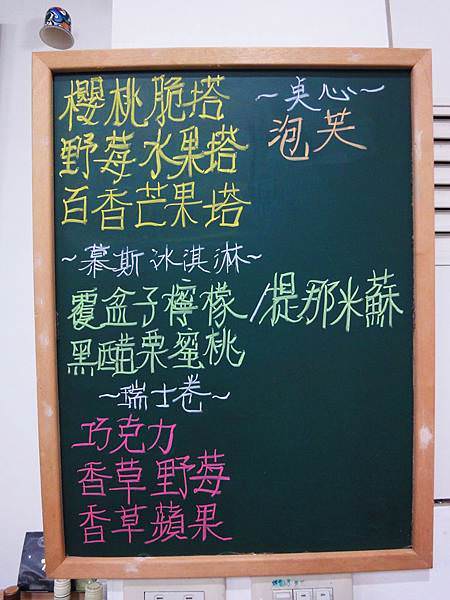 櫻桃脆塔
野莓水果塔
百香芒果塔
~慕斯冰淇淋~
覆盆子檸檬/提那米蘇
黑醋栗蜜桃
~瑞士卷~
巧克力
香草野莓
香草蘋果
~桌心~
泡芙